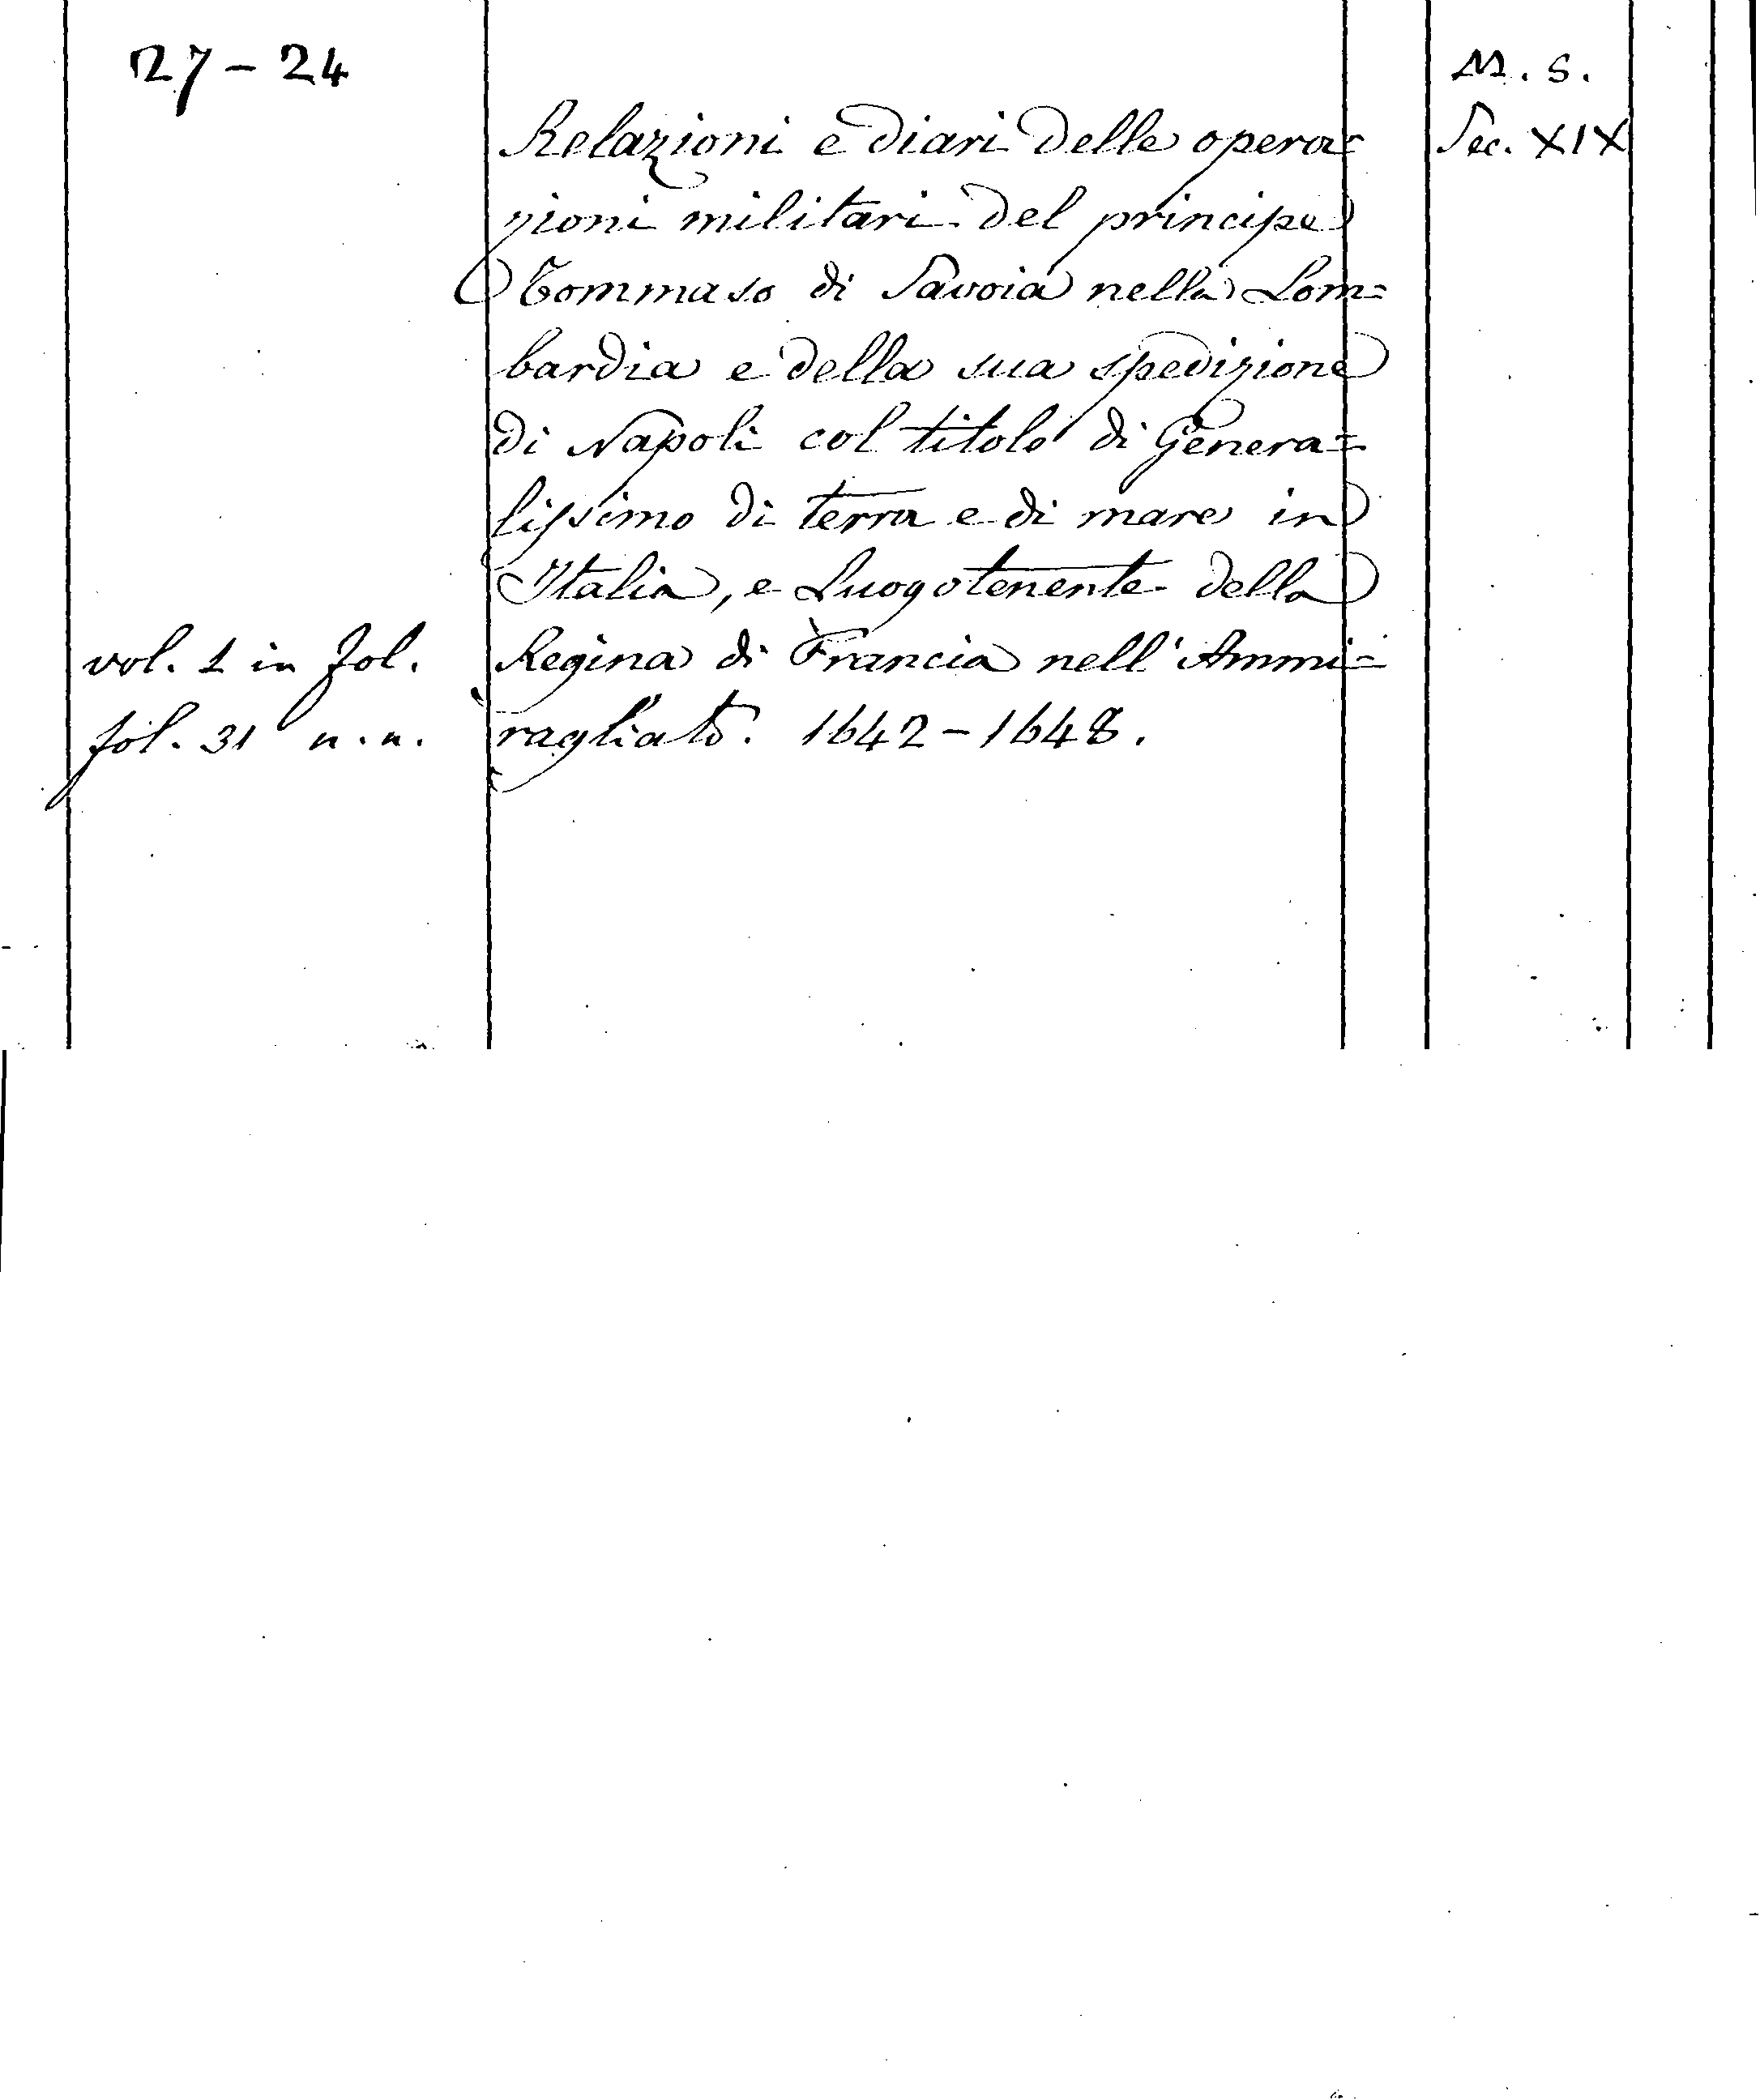 27-24
M. S.
Sec. XIX
Relazioni e diari delle opera=
zioni militari del principe
Tommaso di Savoia nella Lom=
bardia e della sua spedizione
di Napoli col titolo di Genera=
lissimo di terra e di mare in
Italia, e Luogotenente della
Regina di Francia nell'Ammi=
ragliato. 1642-1648.
vol. 1 in fol.
fol. 31 n.n.